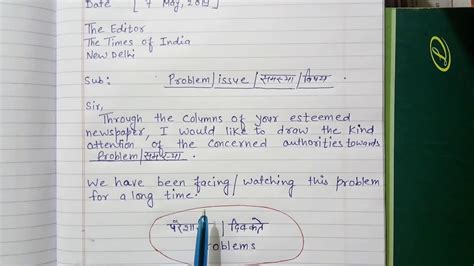 Date [ 7 May, 2019 ]
The Editor
The Times of India
New Delhi
Sub: Problem/issue/समस्या/विषय.
Sir,
Through the columns of your esteemed
newspaper, I would like to draw the kind
attention of the concerned authorities towards
Problem/समस्या.
We have been facing/watching this problem
for a long time.
/दिक्कतें